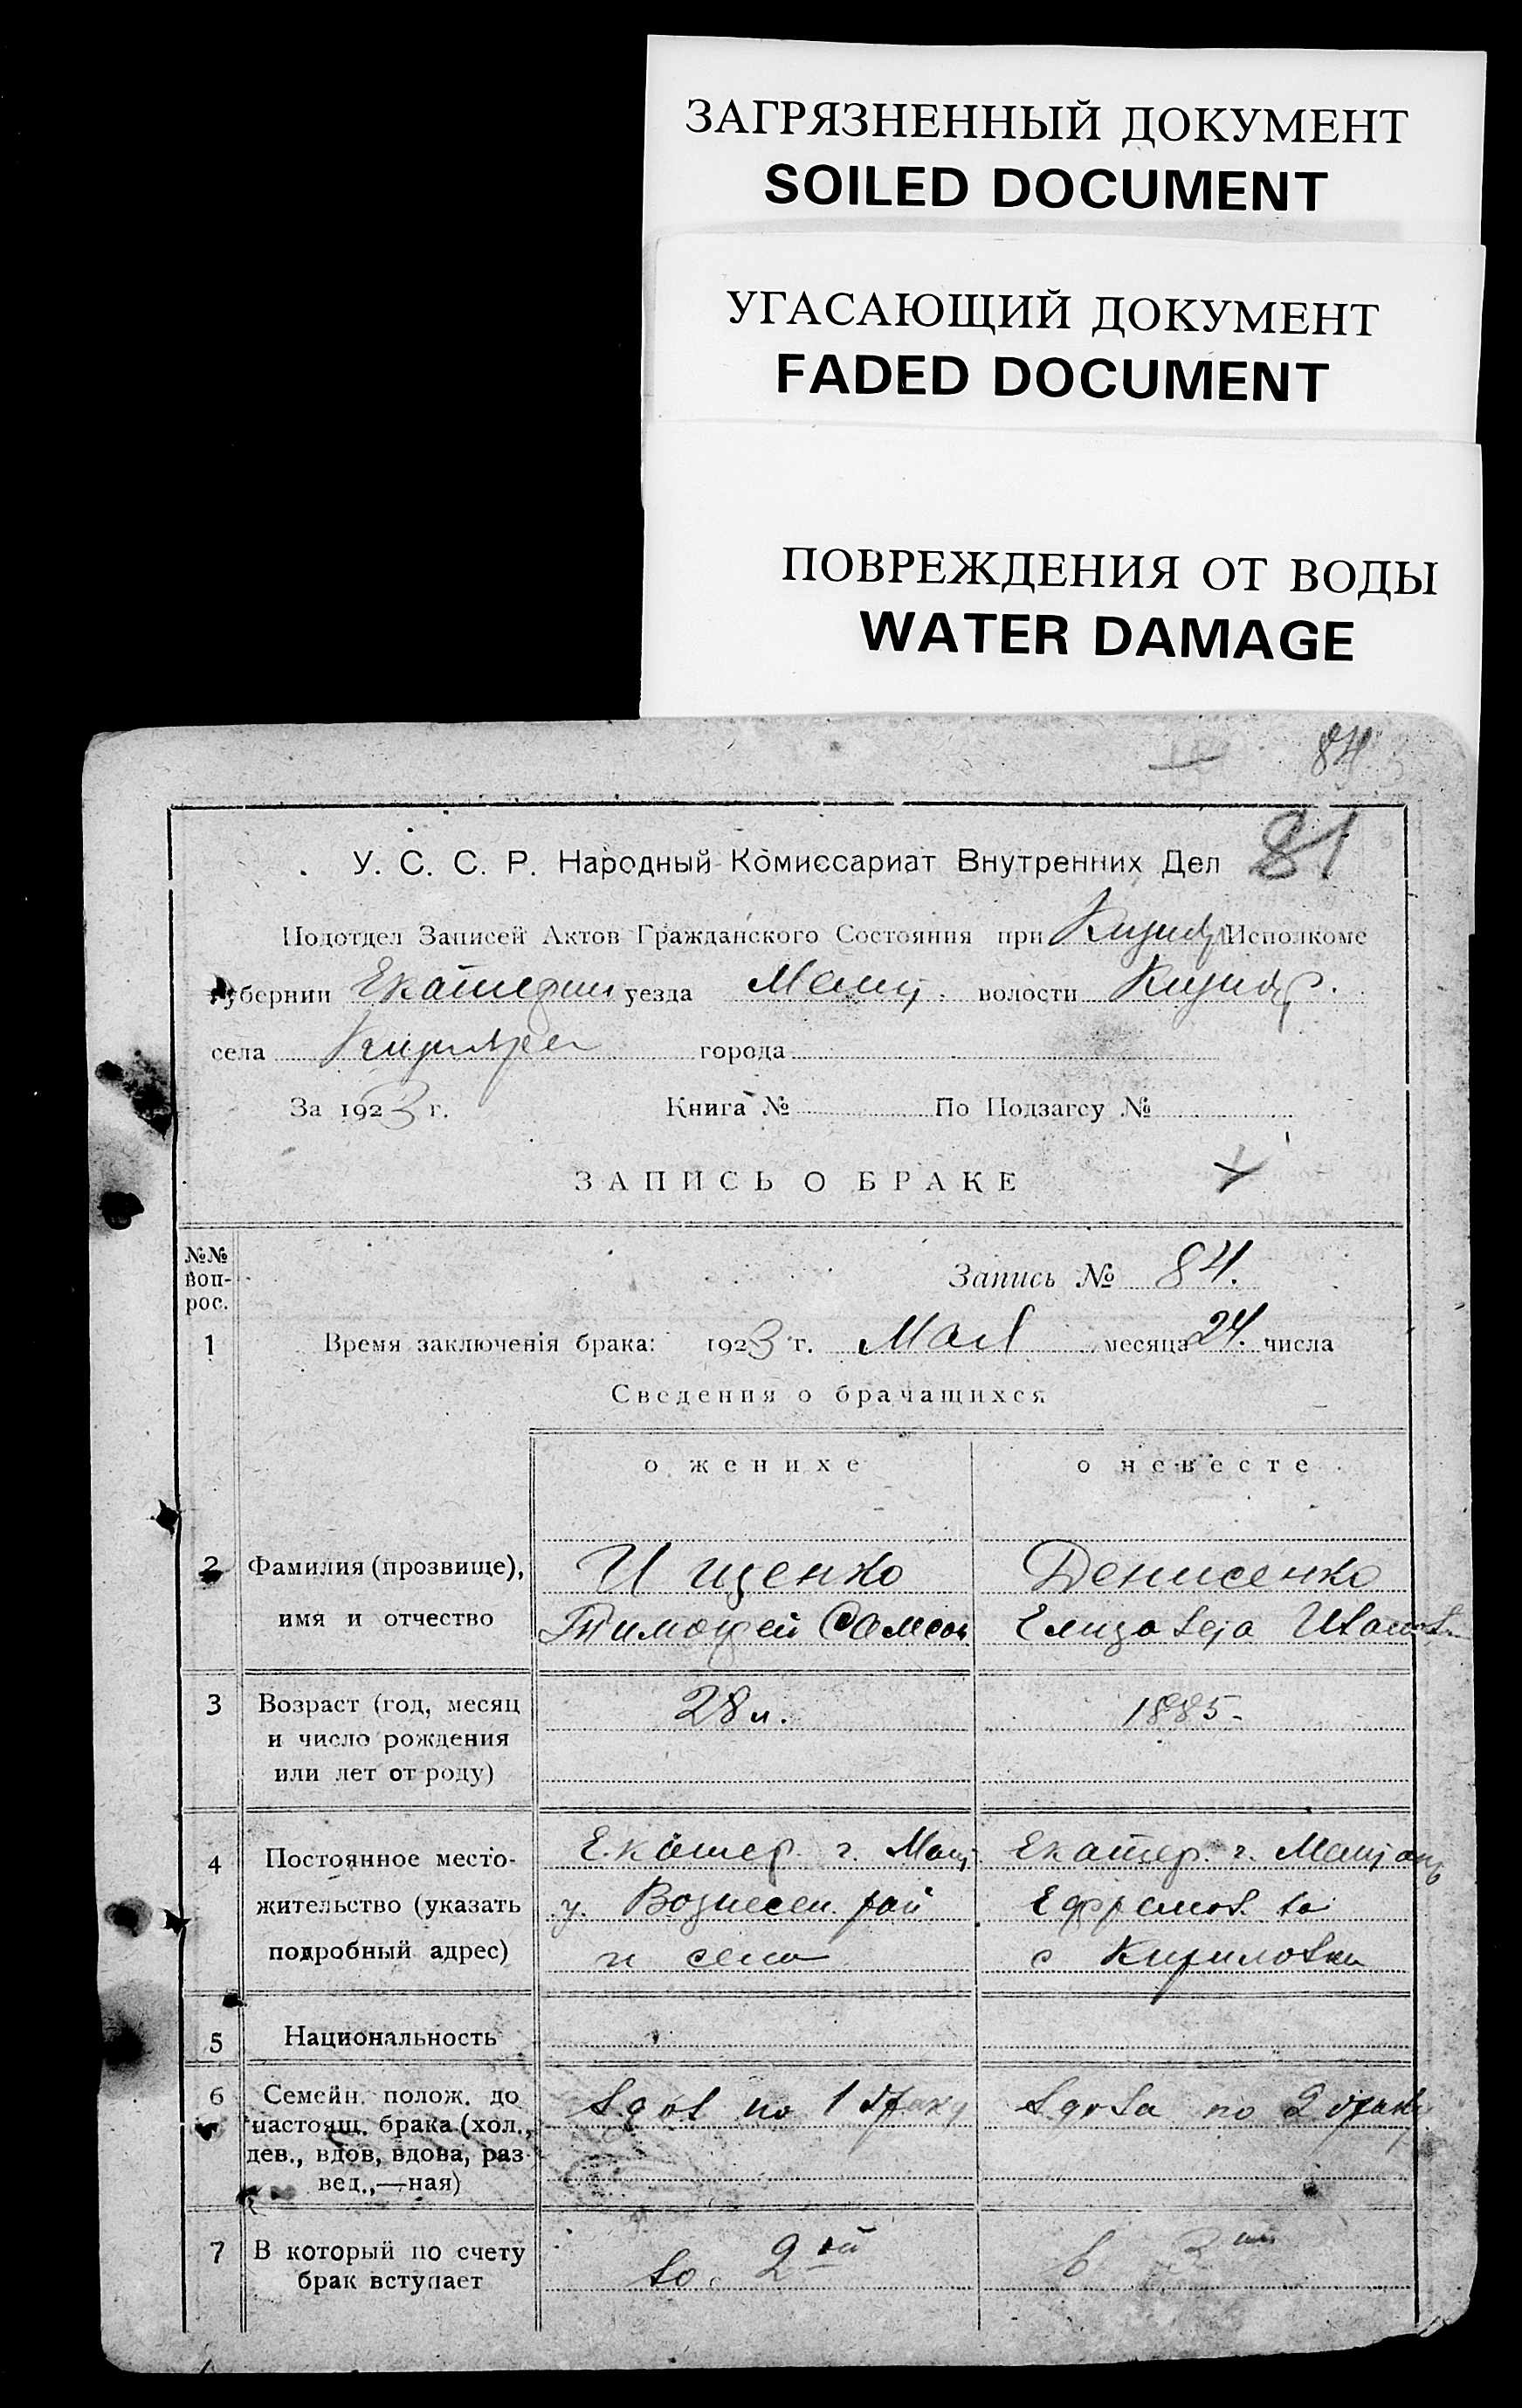 ЗАГРЯЗНЕННЫЙ ДОКУМЕНТ
SOILED DOCUMENT
УГАСАЮЩИЙ ДОКУМЕНТ
FADED DOCUMENT
ПОВРЕЖДЕНИЯ ОТ ВОДЫ
WATER DAMAGE
84
81
У. С. С. Р. Народный Комиссариат Внутренних Дел
Подотдел Записей Актов Гражданского Состояния при Исполкоме
Губернии Екатерин уезда волости
села города
За 1923 г. Книга № По Подзагсу №
ЗАПИСЬ О БРАКЕ
№№ воп-рос.
Запись № 84.
1 Время заключенія брака: 1923 г. Мая месяца 24. числа
Сведения о брачащихся
о женихе о невесте
2 Фамилия (прозвище), Ищенко Денисенко
имя и отчество Тимофей Самсон Елизавета Иванов.
3 Возраст (год, месяц 28 л. 1885
и число рождения
или лет от роду)
4 Постоянное место- Екатер. г. Екатер. г.
жительство (указать у. Вознесен. рай Ефремов.
подробный адрес) и села с Кириловки
5 Национальность
6 Семейн. полож. до вдов по 1 браку вдова по 2 браку
настоящ. брака (хол.,
дев., вдов, вдова, раз-
вед.,—ная)
7 В который по счету во 2ой в 3ий
брак вступает